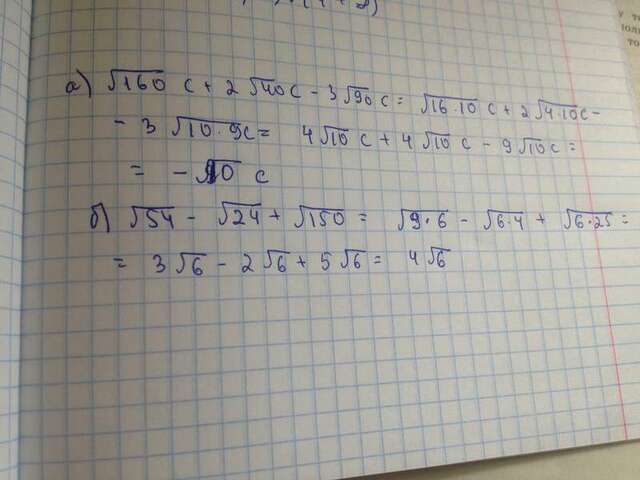 а) √160 c + 2 √40c - 3 √90 c = √16·10 c + 2 √4·10c -
- 3 √10·9c = 4√10 c + 4 √10 c - 9 √10c =
= - √10 c
б) √54 - √24 + √150 = √9·6 - √6·4 + √6·25 =
= 3√6 - 2√6 + 5√6 = 4√6